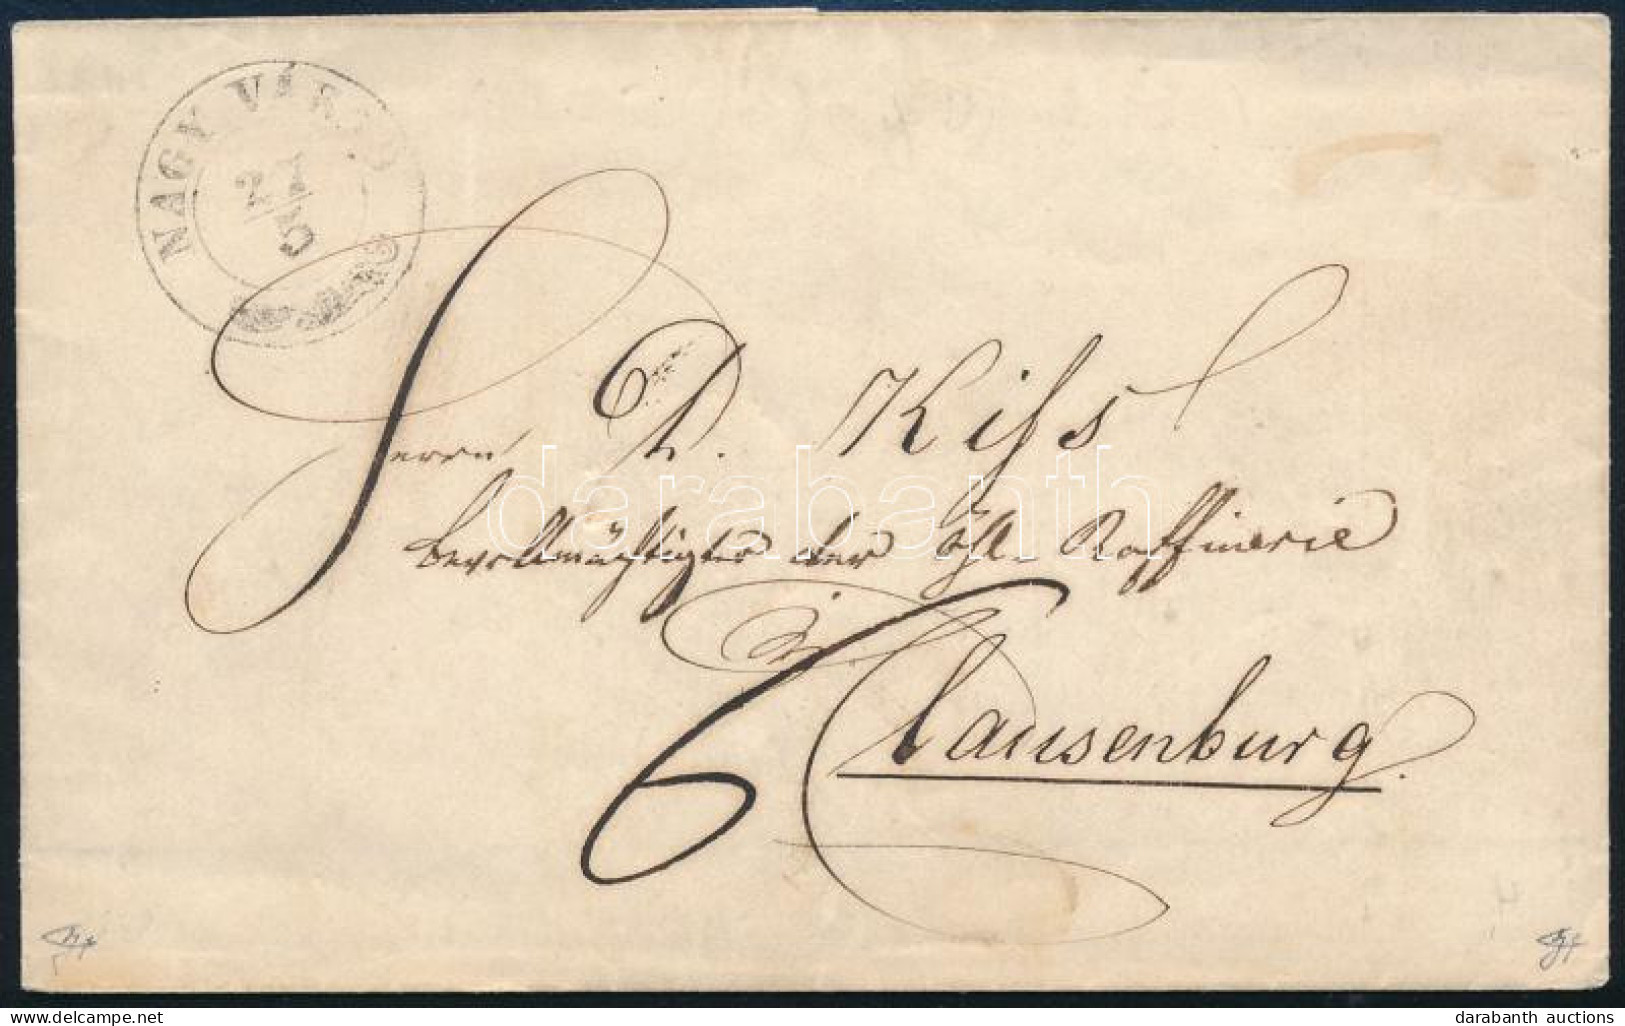 NAGY VÁRAD
27
5
Herrn D. Kiss
bevollmächtigter der Zhl. Raffinerie
in
6 Clausenburg.
darabanth
darabanth auctions